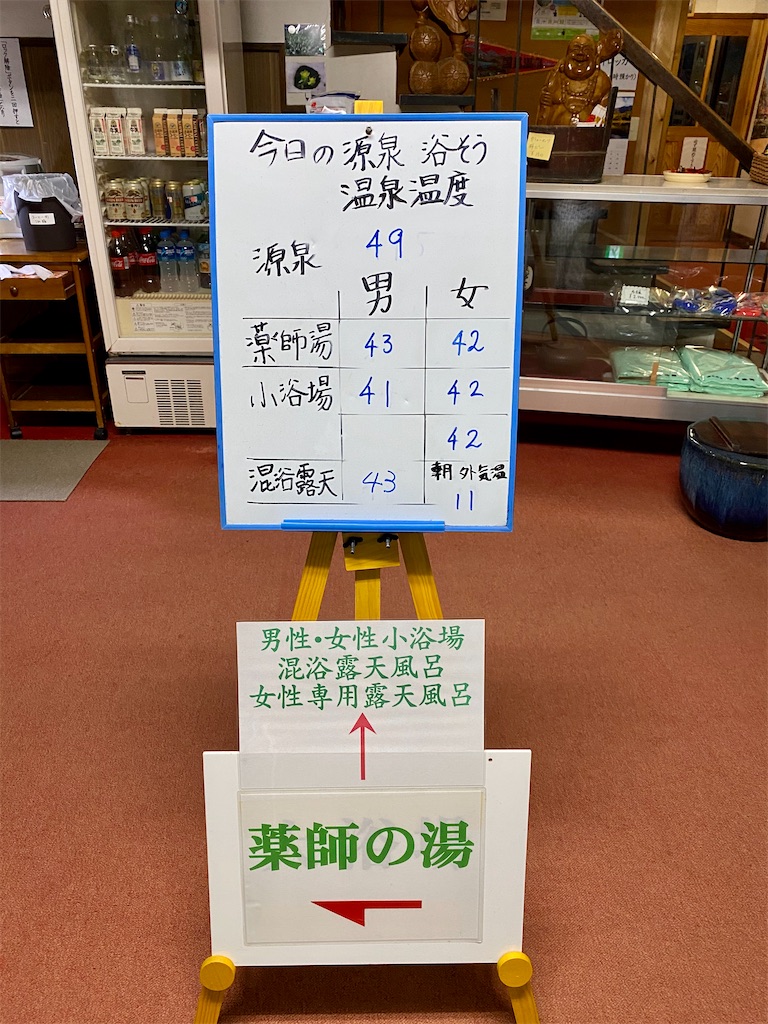 今日の源泉 浴そう
温泉温度
源泉 49
男 女
薬師湯 43 42
小浴場 41 42
42
混浴露天 43 朝 外気温
11
男性・女性小浴場
混浴露天風呂
女性専用露天風呂
薬師の湯